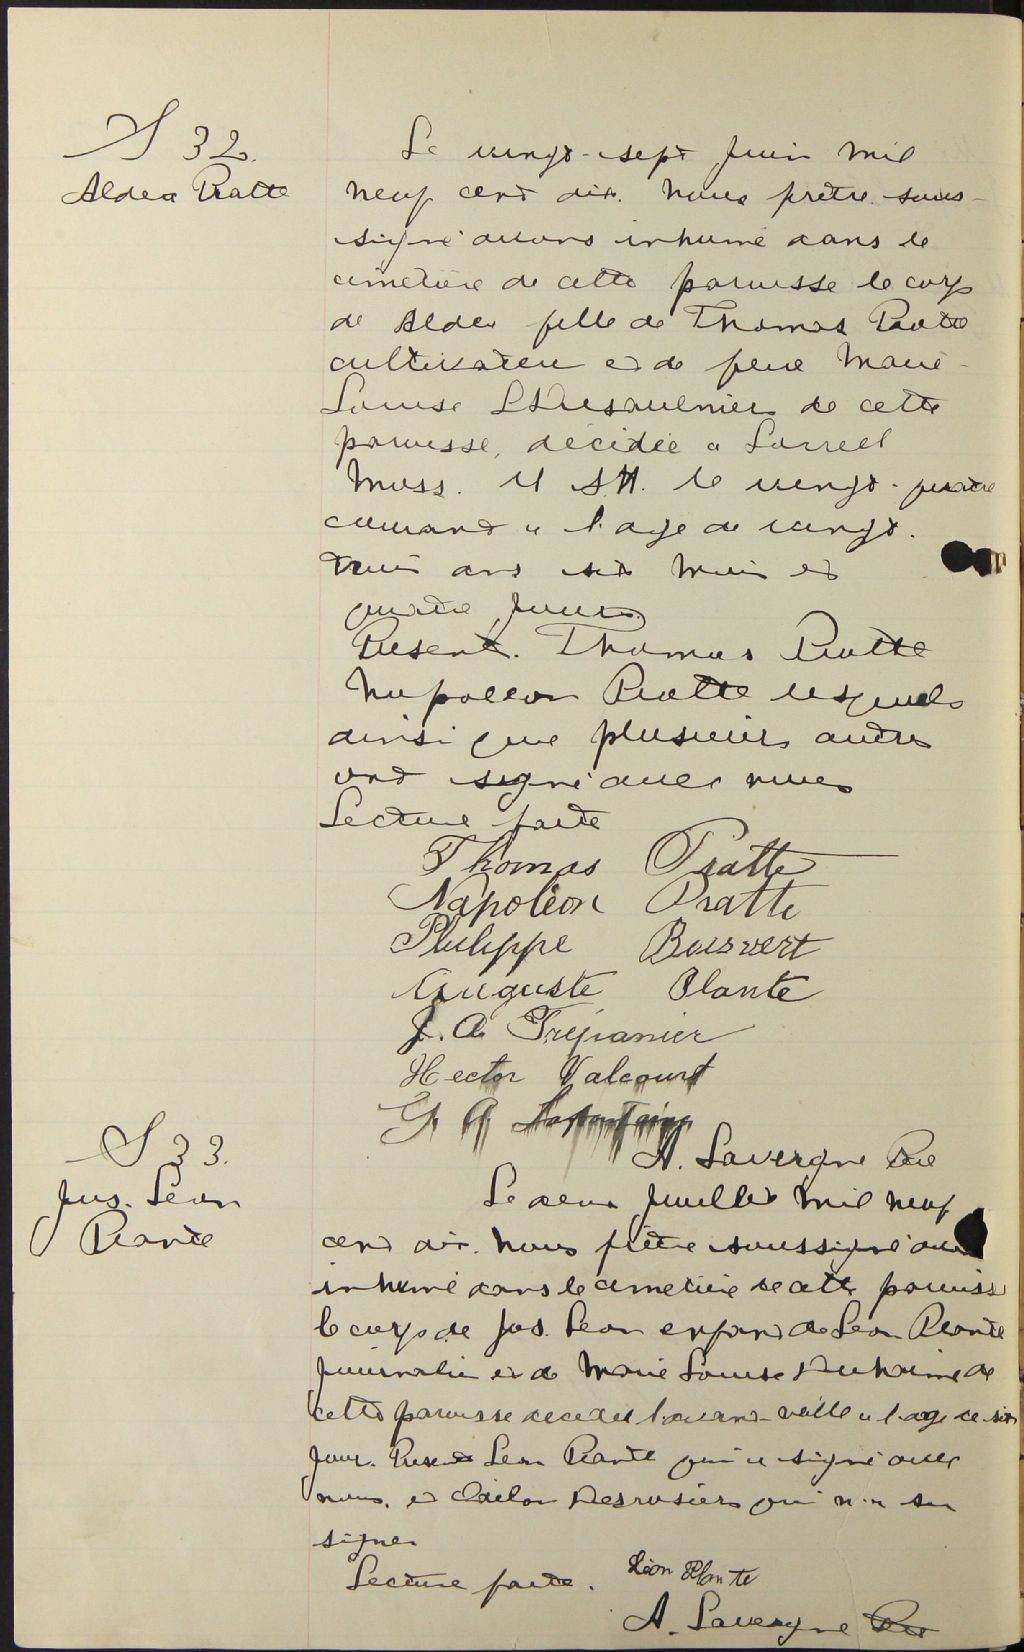 S 32.
Aldea Pratte
Le vingt-sept juin mil
neuf cent dix. Nous prêtre sous-
signé avons inhumé dans le
cimetière de cette paroisse le corps
de Aldea fille de Thomas Pratte
cultivateur et de feue Marie-
Louise Desaulniers de cette
paroisse, décédée a
Mass. le vingt-quatre
courant a l'age de vingt.
trois ans six mois et
quatre jours.
Présent. Thomas Pratte
Napoleon Pratte lesquels
ainsi que plusieurs autres
ont signé avec nous
Lecture faite
Thomas Pratte
Napoléon Pratte
Philippe Boisvert
Auguste Plante
J. A. Trépanier
Hector Valcourt
G A Lafontaine
A. Lavergne Ptre
S 33.
Jos. Léon
Plante
Le deux juillet mil neuf
cent dix. Nous prêtre soussigné avons
inhumé dans le cimetière de cette paroisse
le corps de Jos. Léon enfant de Léon Plante
journalier et de Marie Louise Duhaime de
cette paroisse décédé l'avant-veille a l'age de six
jour. Présent Léon Plante qui a signé avec
nous, et Desrosiers qui n'a su
signer
Lecture faite.
Léon Plante
A. Lavergne Ptre